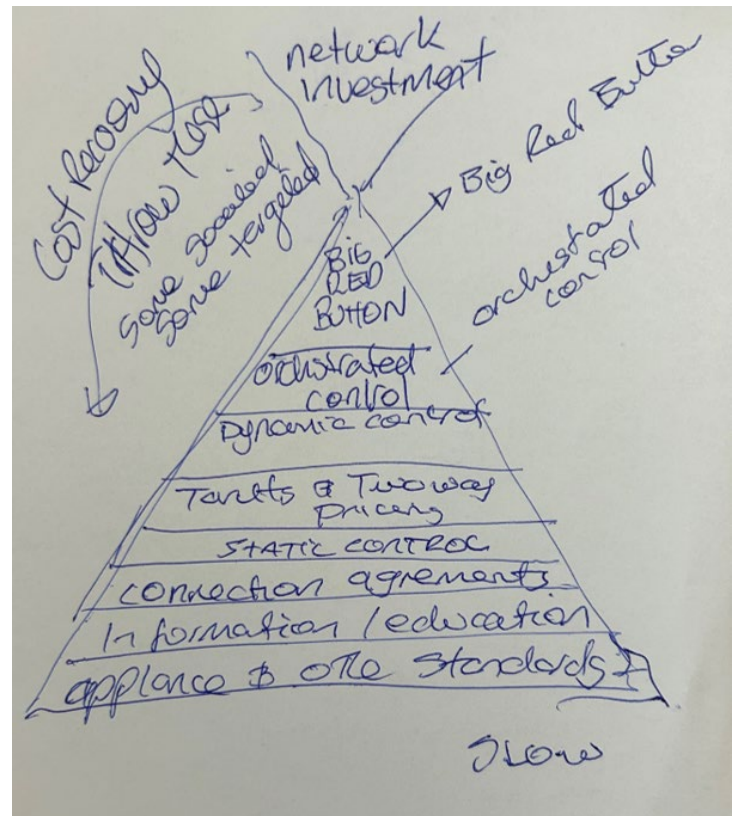 network
investment
Cost Recovery
throw these
some socialised
some targeted
Big Red Button
orchestrated
control
BIG
RED
BUTTON
orchstrated
control
Dynamic control
Tariffs & Two way
pricing
STATIC CONTROL
connection agrements
Information / education
appliance & other standards
SLOW